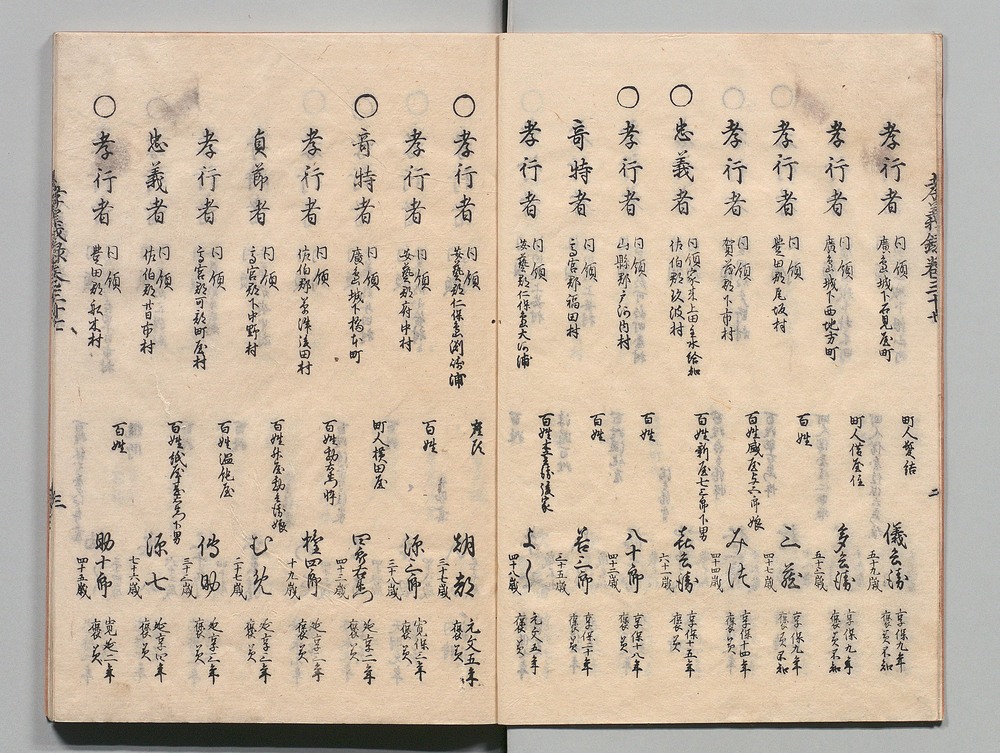 孝義録巻三十七
孝行者 同領 廣島城下石見屋町 町人髪結 儀兵衛 五十九歳 享保九年 褒美不知
孝行者 同領 廣島城下西地方町 町人借屋住 多兵衛 五十三歳 享保九年 褒美不知
孝行者 同領 豊田郡尾坂村 百姓 三蔵 四十七歳 享保九年 褒美不知
孝行者 同領 賀茂郡下市村 百姓盛屋与六郎娘 みほ 四十四歳 享保十四年 褒美
○忠義者 同領家来上田主水給知 佐伯郡玖波村 百姓新屋七三郎下男 喜兵衛 六十一歳 享保十五年 褒美
○孝行者 同領 山縣郡戸河内村 百姓 八十郎 四十二歳 享保十八年 褒美
奇特者 同領 高宮郡福田村 百姓 若三郎 三十五歳 享保二十年 褒美
孝行者 同領 安藝郡仁保島大河浦 百姓 後家 よし 四十八歳 元文五年 褒美
○孝行者 同領 安藝郡仁保島渕崎浦 座頭 朝都 三十七歳 元文五年 褒美
孝行者 同領 安藝郡府中村 百姓 源三郎 三十八歳 寛保三年 褒美
○奇特者 同領 廣島城下橋本町 町人横田屋 四郎右衛門 四十三歳 延享二年 褒美
孝行者 同領 佐伯郡草津後田村 百姓 忰 権四郎 十九歳 延享二年 褒美
貞節者 同領 高宮郡下中野村 百姓 娘 むめ 二十七歳 延享三年 褒美
孝行者 同領 高宮郡可部町屋村 百姓温飩屋 傳助 三十三歳 延享三年 褒美
忠義者 同領 佐伯郡廿日市村 百姓紙屋 下男 源七 七十六歳 延享四年 褒美
○孝行者 同領 豊田郡船木村 百姓 助十郎 四十五歳 寛延二年 褒美
孝義録巻三十七
三